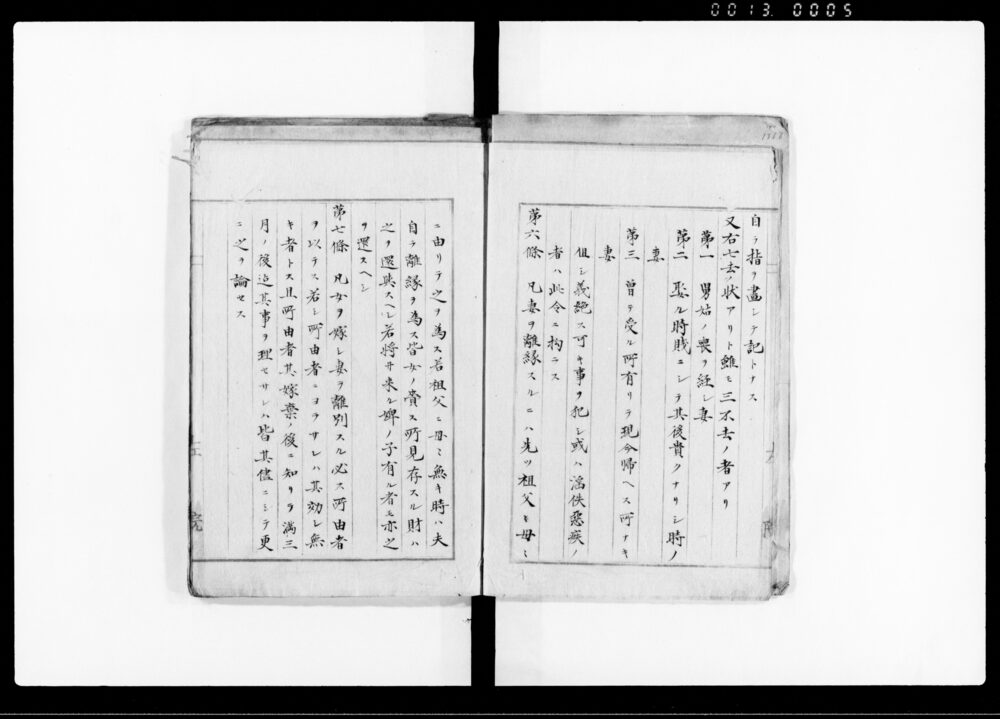 0013 0005
1558
自ラ指ヲ畫シテ記トナス
又右七去ノ狀アリト雖モ三不去ノ者アリ
第一 舅姑ノ喪ヲ経シ妻
第二 娶ル時賎ニシテ其後貴クナリシ時ノ
妻
第三 曾テ受ル所有リテ現今帰ヘス所ナキ
妻
但シ義絶ス可キ事ヲ犯シ或ハ滛佚惡疾ノ
者ハ此令ニ拘ラス
第六條 凡妻ヲ離縁スルニハ先ツ祖父ミ母ミ
ニ由リテ之ヲ為ス若祖父ミ母ミ無キ時ハ夫
自ラ離縁ヲ為ス皆女ノ賷ス所見存スル財ハ
之ヲ還與スヘシ若將サ来ル婢ノ子有ル者モ亦之
ヲ還スヘシ
第七條 凡女ヲ嫁シ妻ヲ離別スル必ス所由者
ヲ以テス若シ所由者ニヨラサレハ其効シ無
キ者トス且所由者其嫁棄ノ後ニ知リテ満三
月ノ後迠其事ヲ理セサレハ皆其儘ニシテ更
ニ之ヲ論セス
院